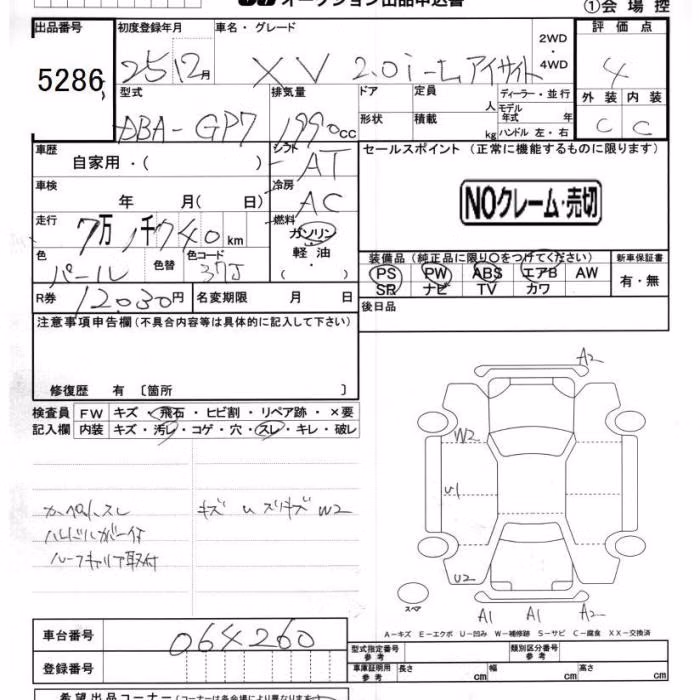 オークション出品申込書
①会場控
出品番号 初度登録年月 車名・グレード 2WD・4WD 評価点
5286 25 12月 XV 2.0i-L アイサイト 4
型式 排気量 ドア 定員 人 ディーラー・並行 外装 内装
DBA-GP7 1990cc 形状 積載 kg モデル年式 年 ハンドル 左・右 C C
車歴 シフト セールスポイント (正常に機能するものに限ります)
自家用・( ) AT
車検 冷房
年 月( 日) AC NOクレーム・売切
走行 燃料
7万1千740km ガソリン
色 色替 色コード 軽油・( ) 装備品 (純正品に限り○をつけてください) 新車保証書
パール 37J PS PW ABS エアB AW 有・無
SR ナビ TV カワ
R券 12030円 名変期限 月 日 後日品
注意事項申告欄 (不具合内容等は具体的に記入して下さい)
修復歴 有 〔箇所 〕
検査員 FW キズ・飛石・ヒビ割・リペア跡・×要
記入欄 内装 キズ・汚レ・コゲ・穴・スレ・キレ・破レ
A2
W2
U1
U2
スペア
A1 A1 A2
カーペットスレ キズ U スリキズ W2
ルーフキャリア取付
A-キズ E-エクボ U-凹み W-補修跡 S-サビ C-腐食 XX-交換済
車台番号 064260 型式指定番号 参考 類別区分番号 参考
登録番号 車庫証明用 参考 長さ cm 幅 cm 高さ cm
希望出品コーナー (コーナーは各会場により異なります)